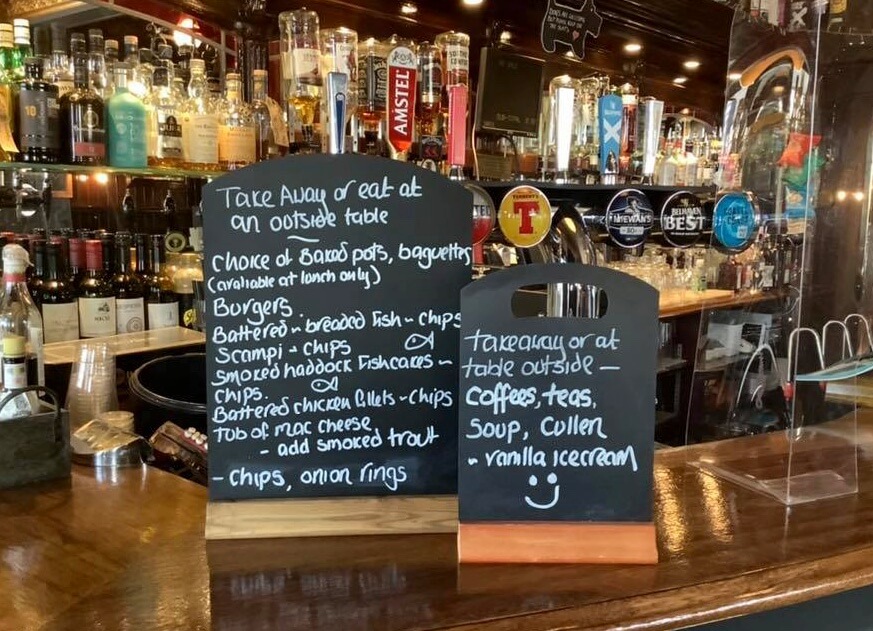 Take Away or eat at
an outside table
choice of Baked pots, baguettes
(avaliable at lunch only)
Burgers.
Battered ~ breaded fish ~ chips
Scampi - chips
smoked haddock fishcakes ~
chips.
Battered chicken fillets ~ chips
Tub of mac cheese
- add smoked trout
- chips, onion rings
takeaway or at
table outside —
coffees, teas,
soup, cullen
~ vanilla icecream
AMSTEL
TENNENT'S
T
McEWAN'S
80/-
BELHAVEN
BEST
10